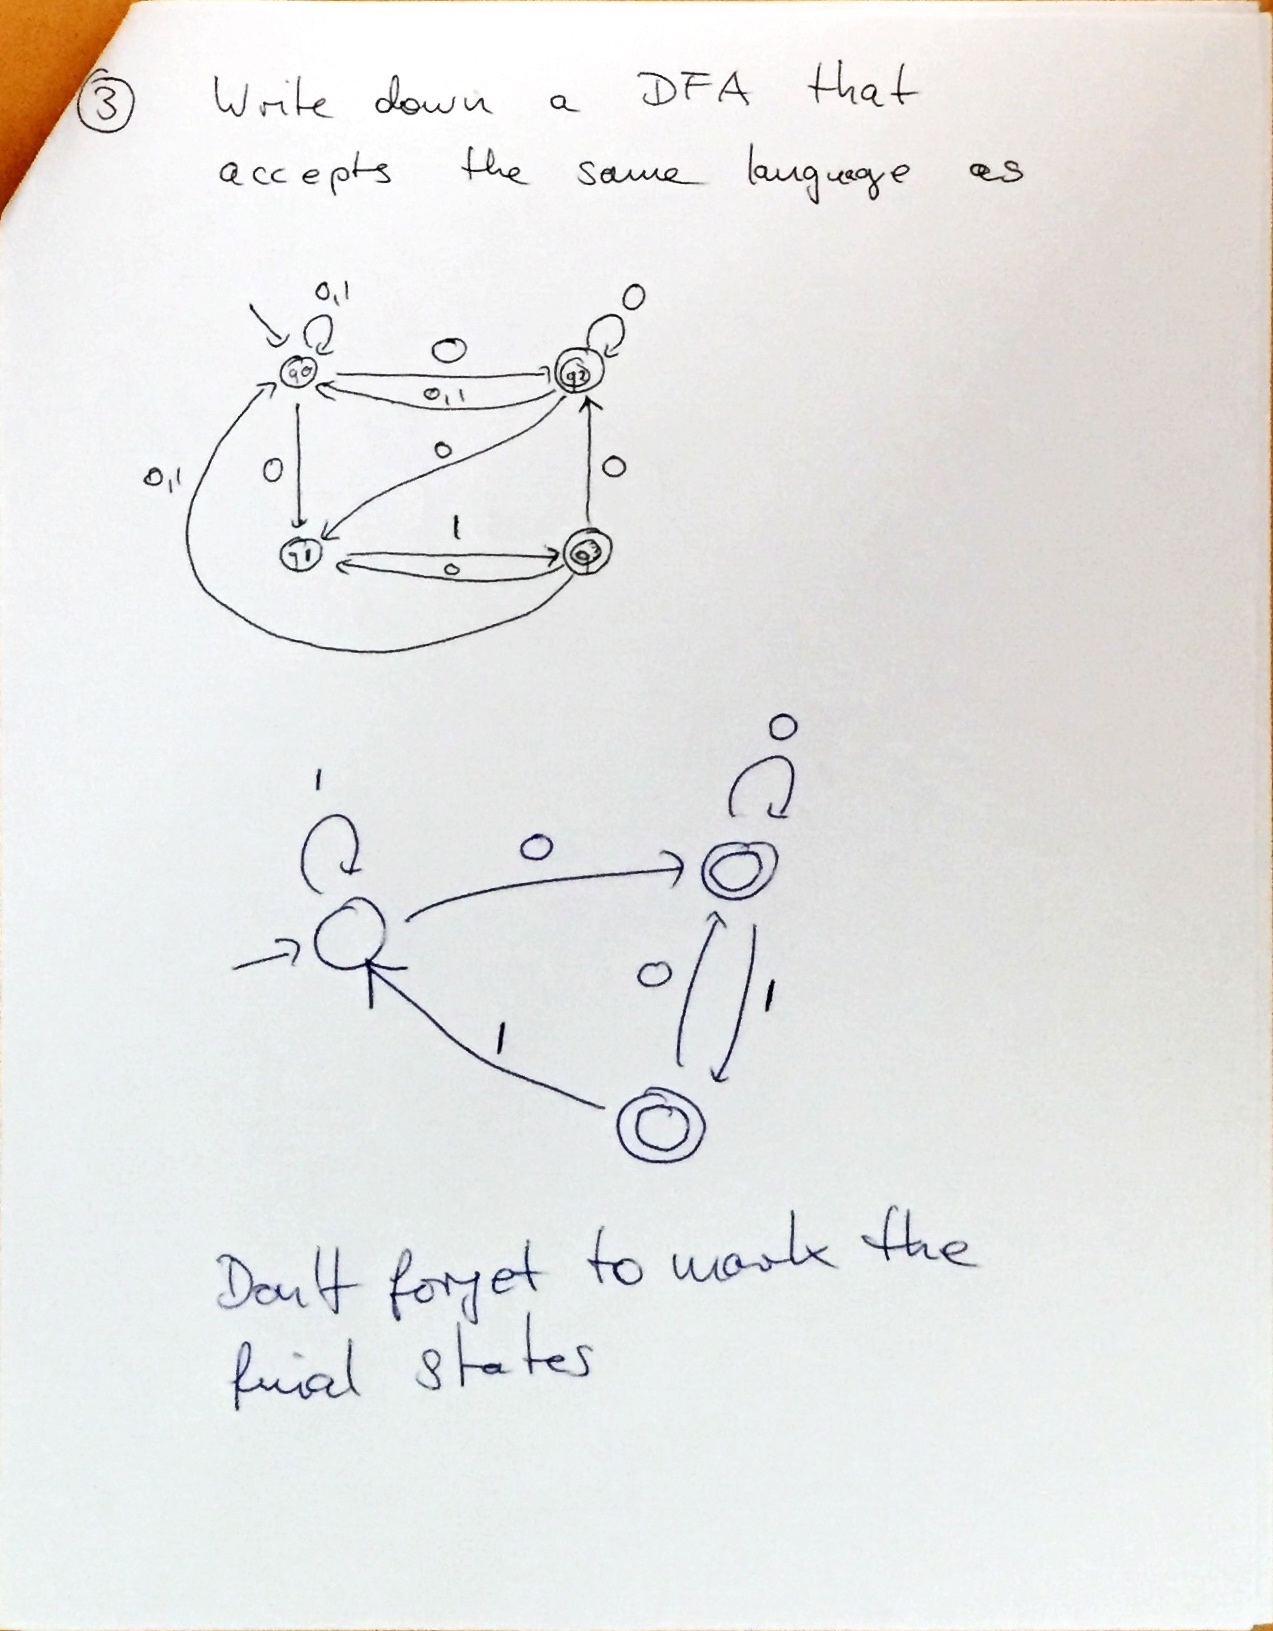 3 Write down a DFA that
accepts the same language as
0,1
0
0
q0
q2
0,1
0
0,1
0
0
1
q1
q3
0
0
1
0
0
1
1
Don't forget to mark the
final states